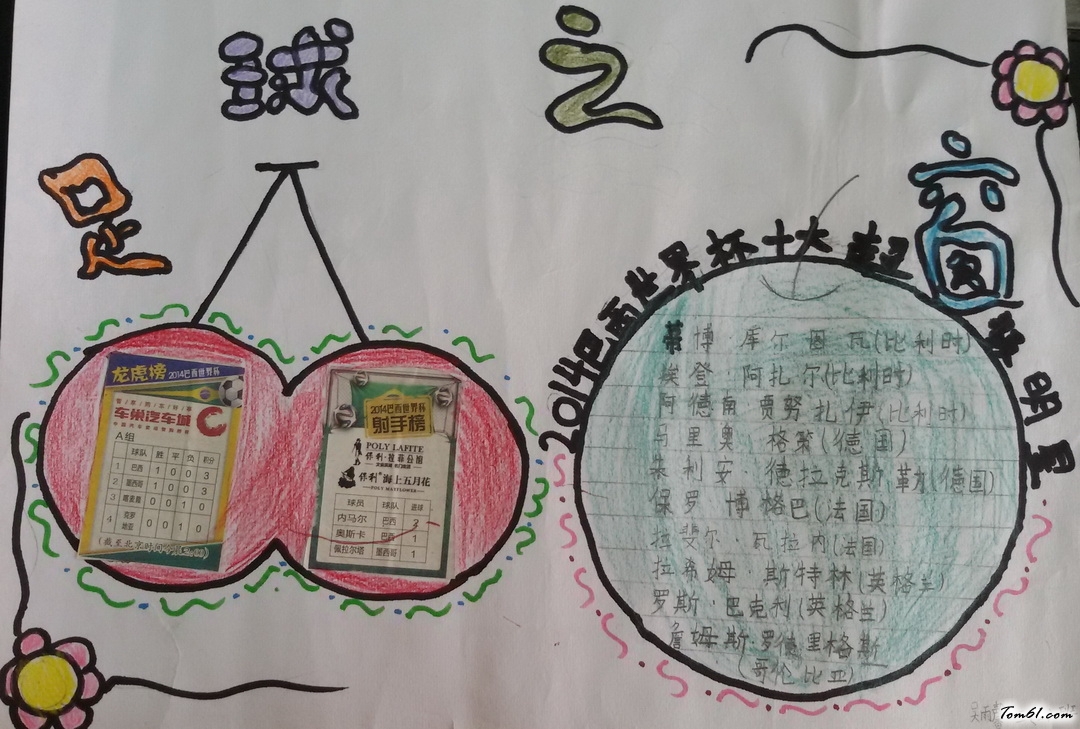 足球之窗
龙虎榜 2014巴西世界杯
车巢汽车城
A组
球队 胜 平 负 积分
1 巴西 1 0 0 3
2 墨西哥 1 0 0 3
3 喀麦隆 0 0 1 0
4 克罗地亚 0 0 1 0
2014巴西世界杯
射手榜
POLY LAFITE
保利·拉菲公馆
保利·海上五月花
POLY MAYFLOWER
球员 球队 进球
内马尔 巴西 2
奥斯卡 巴西 1
佩拉尔塔 墨西哥 1
2014巴西世界杯十大超新明星
蒂博·库尔图瓦(比利时)
埃登·阿扎尔(比利时)
阿德南·贾努扎伊(比利时)
马里奥·格策(德国)
朱利安·德拉克斯勒(德国)
保罗·博格巴(法国)
拉斐尔·瓦拉内(法国)
拉希姆·斯特林(英格兰)
罗斯·巴克利(英格兰)
詹姆斯·罗德里格斯
(哥伦比亚)
Tom61.com